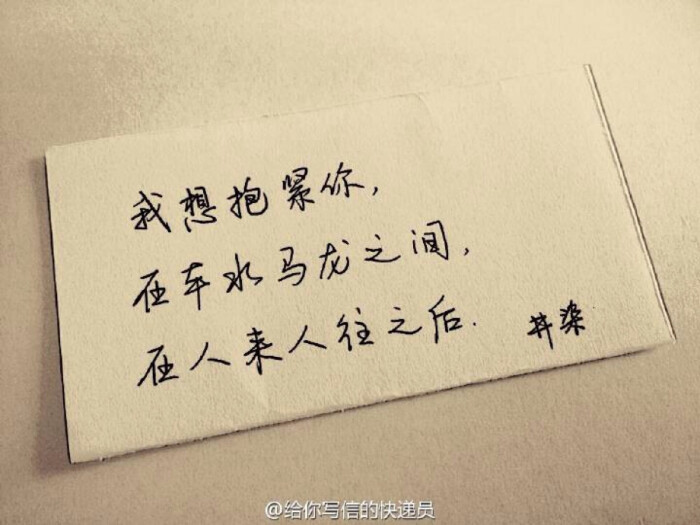 我想抱紧你，
在车水马龙之间，
在人来人往之后.
井染
@给你写信的快递员